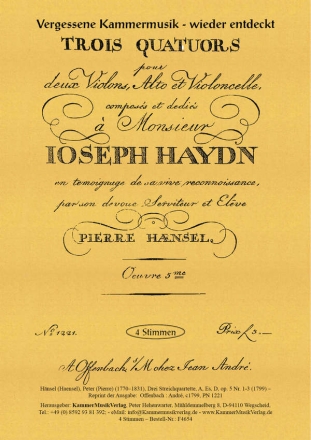 Vergessene Kammermusik - wieder entdeckt
TROIS QUATUORS
pour
deux Violons, Alto et Violoncelle,
composés et dediés
à Monsieur
IOSEPH HAYDN
en temoignage de sa vive reconnoissance,
par son devoué Serviteur et Elève
PIERRE HÆNSEL.
Oeuvre 5me
No 1221.
4 Stimmen
Prix f 3 —
A Offenbach s/M chez Jean André.
Hänsel (Haensel), Peter (Pierre) (1770-1831), Drei Streichquartette, A, Es, D. op. 5 Nr. 1-3 (1799) -
Reprint der Ausgabe: Offenbach : André, c1799, PN 1221
Herausgeber: KammerMusikVerlag, Peter Hatzenwirter, Mühldammelberg 8, D-94110 Wegscheid.
Tel.: +49 (0) 8592 93 81 392; - eMail: info@kammermusikverlag.de - www.kammermusikverlag.de
4 Stimmen - Bestell-Nr.: F4654